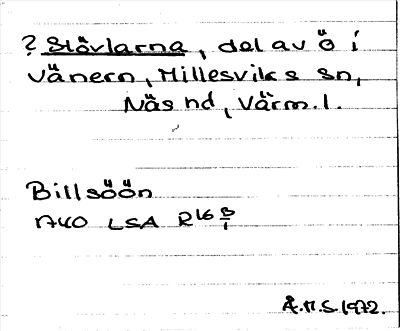 ? Stövlarna, del av ö i
Vänern, Millesviks sn,
Näs hd, Värm. l.
Billsöön
LSA R16 3/1
Å.H.S. 1972.